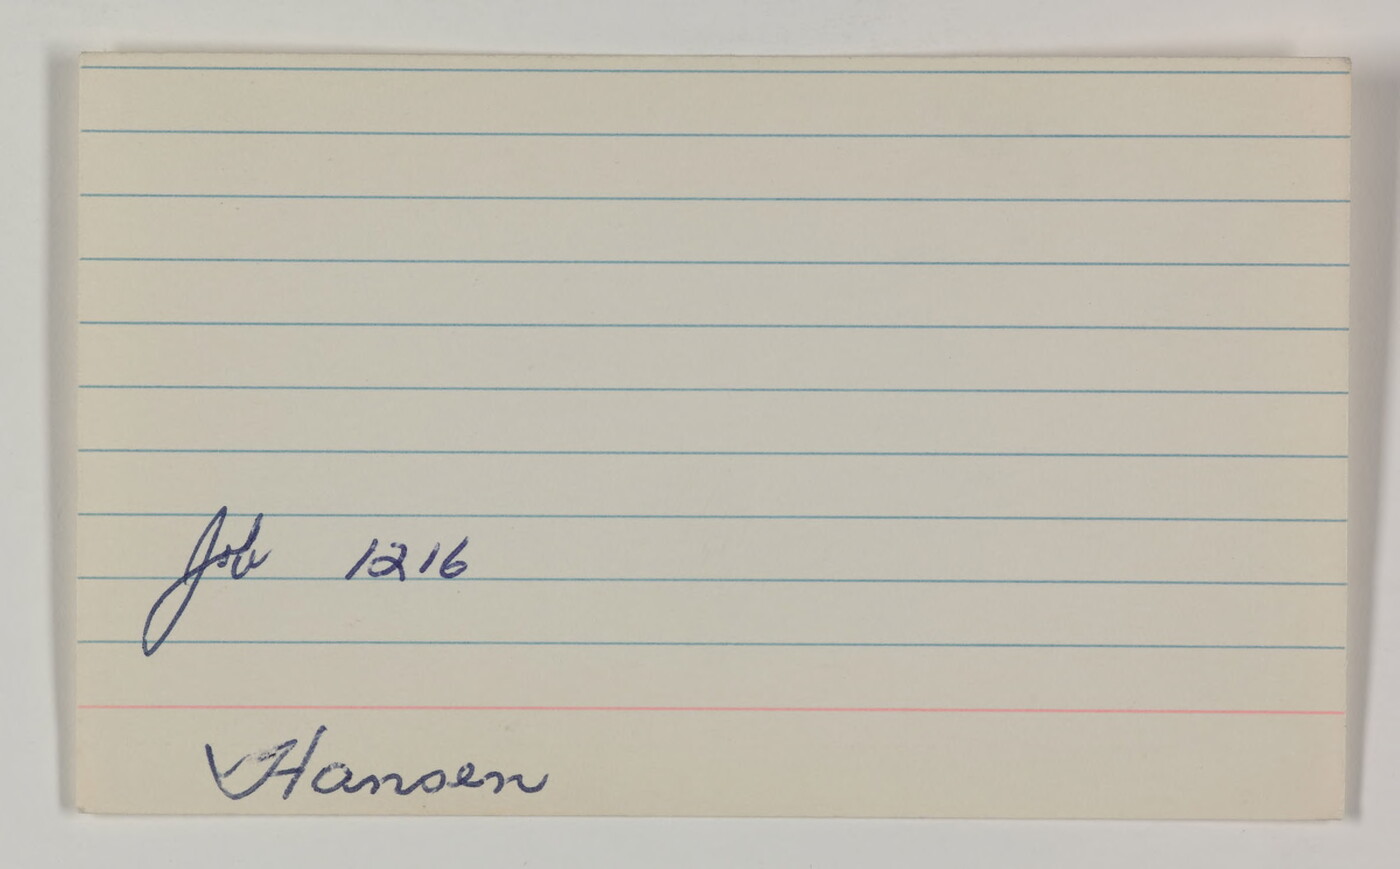 Job 1216
Hansen